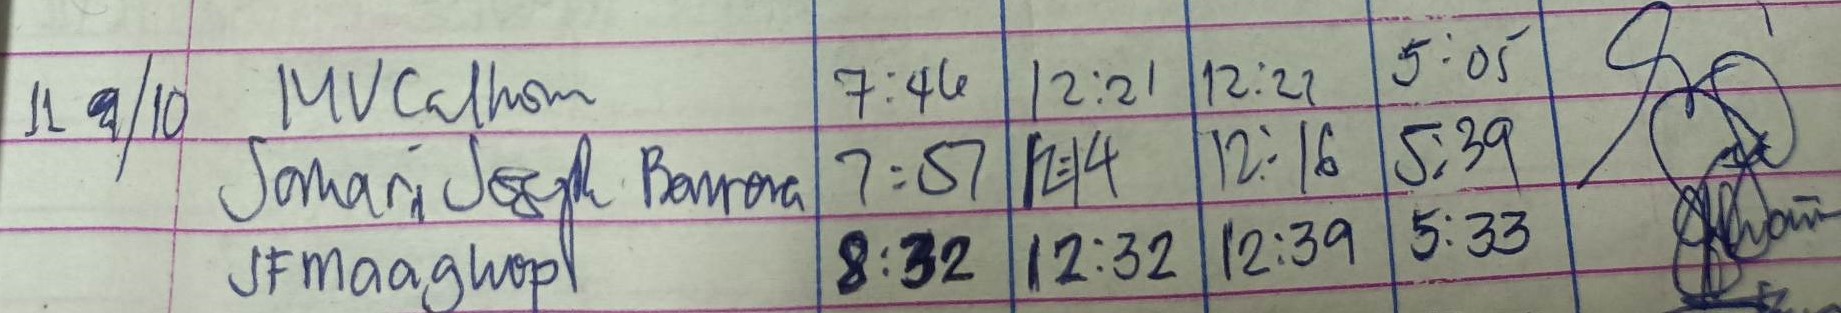 11 9/10 MV Calhom 7:46 12:21 12:22 5:05
Johari Joseph Barrera 7:57 12:14 12:16 5:39
JF Maaghop 8:32 12:32 12:39 5:33